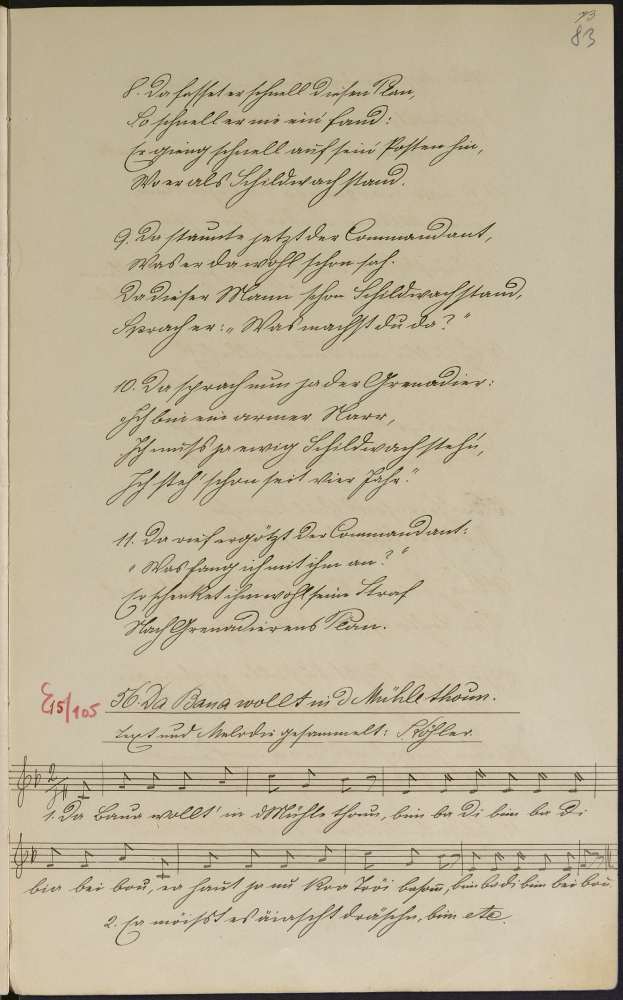 73
83
8. Da fasset er schnell diesen Plan,
So schnell er nie ein' fand:
Er gieng schnell auf sein' Posten hin,
Wo er als Schildwach stand.
9. Da staunte jetzt der Commandant,
Was er da wohl schon sah.
Da dieser Mann schon Schildwach stand,
Sprach er: „Was machst du da?"
10. Da sprach nun ja der Grenadier:
„Ich bin ein armer Narr,
Ich muss ja ewig Schildwach stehn,
Ich steh' schon seit vier Jahr."
11. Da rief ergötzt der Commandant:
„Was fang ich mit ihm an?"
Er schenket ihm wohl seine Straf
Nach Grenadierens Plan.
E15/105
56. Da Baua wollt in d Mühle thoun.
Text und Melodie gesammelt: Köhler.
1. Da Baua wollt' in d Mühle thoun, bim ba di bim ba di
bia bei bou, ea haut ja nu koa Troi, bim ba di bim bei bou.
2. Ea etc.